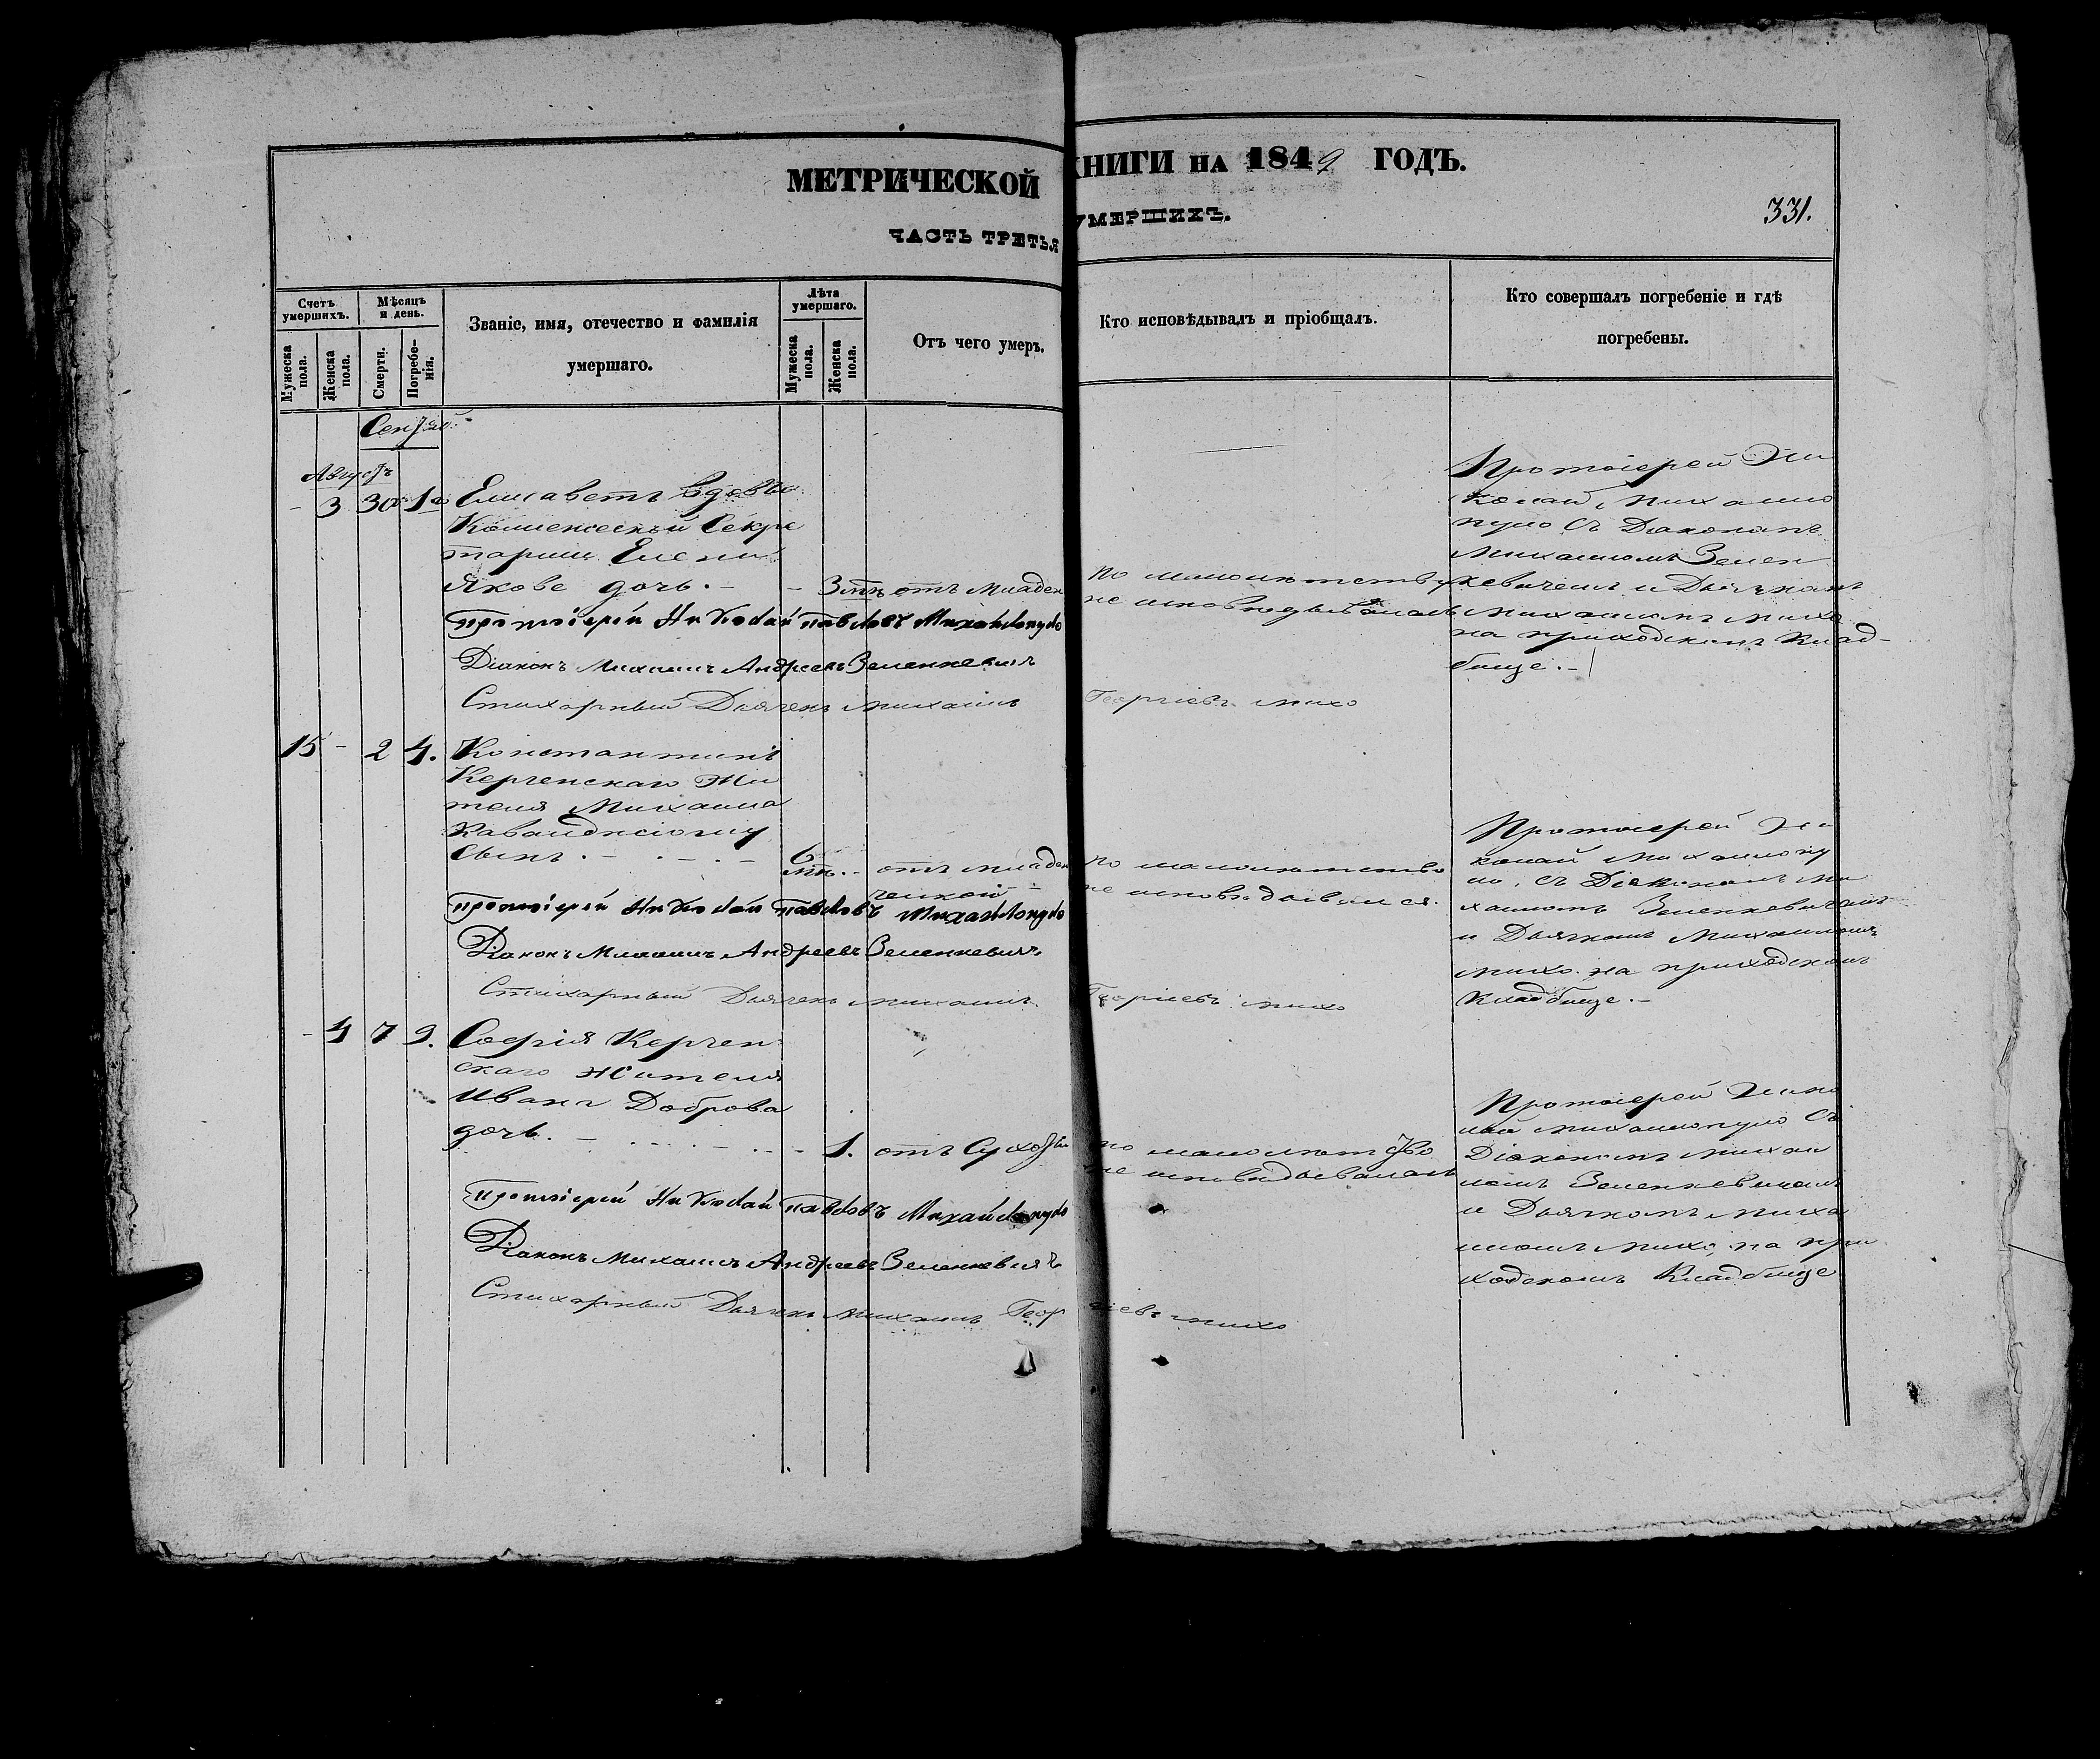 МЕТРИЧЕСКОЙ КНИГИ НА 1849 ГОДЪ.
ЧАСТЬ ТРЕТЬЯ УМЕРШИХЪ.
331.
Счетъ умершихъ.
Мужеска пола.
Женска пола.
Мѣсяцъ и день.
Смерти.
Погребенія.
Званіе, имя, отечество и фамилія
умершаго.
Лѣта умершаго.
Мужеска пола.
Женска пола.
Отъ чего умеръ.
Кто исповѣдывалъ и пріобщалъ.
Кто совершалъ погребеніе и гдѣ
погребены.
Августъ
- 3 30 1
Елисаветъ вдовы
Коллежскый Секре
тарши Елени
Якове дочь. -
- 3 отъ младен
по малолѣтству
не исповѣдывалась
Протоіерей Ни
колай Михайло
пуло съ Діакономъ
Михаиломъ Зелен
кевичемъ и Дьячкомъ
Михаиломъ Михо
на приходскомъ клад-
бище. -
Протоіерей Николай Павловъ Михайлопуло
Діаконъ Михаилъ Андреевъ Зеленкевичъ
Стихарный Дьячекъ Михаилъ Георгіевъ Михо
15 - 2 4.
Константинъ
Керченскаго Жи
теля Михаила
сынъ. -
6
отъ младен
ческой
по малолетство
не исповѣдывался.
Протоіерей Ни
колай Михайлопу
ло, съ Діакономъ Ми
хаиломъ Зеленкевичемъ
и Дьячкомъ Михаиломъ
Михо на приходскомъ
Кладбище. -
Протоіерей Николай Павловъ Михайлопуло
Діаконъ Михаилъ Андреевъ Зеленкевичъ
Стихарный Дьячекъ Михаилъ Георгіевъ Михо
- 4 7 9.
Софія Керчен
скаго жителя
Ивана Доброва
дочь. -
- 1. отъ Сухо
по малолѣтство
не исповѣдывалась
Протоіерей Нико
лай Михайлопуло съ
Діакономъ Михаи
ломъ Зеленкевичемъ
и Дьячкомъ Миха
иломъ Михо, на при
ходскомъ Кладбище
Протоіерей Николай Павловъ Михайлопуло
Діаконъ Михаилъ Андреевъ Зеленкевичъ
Стихарный Дьячекъ Михаилъ Георгіевъ Михо